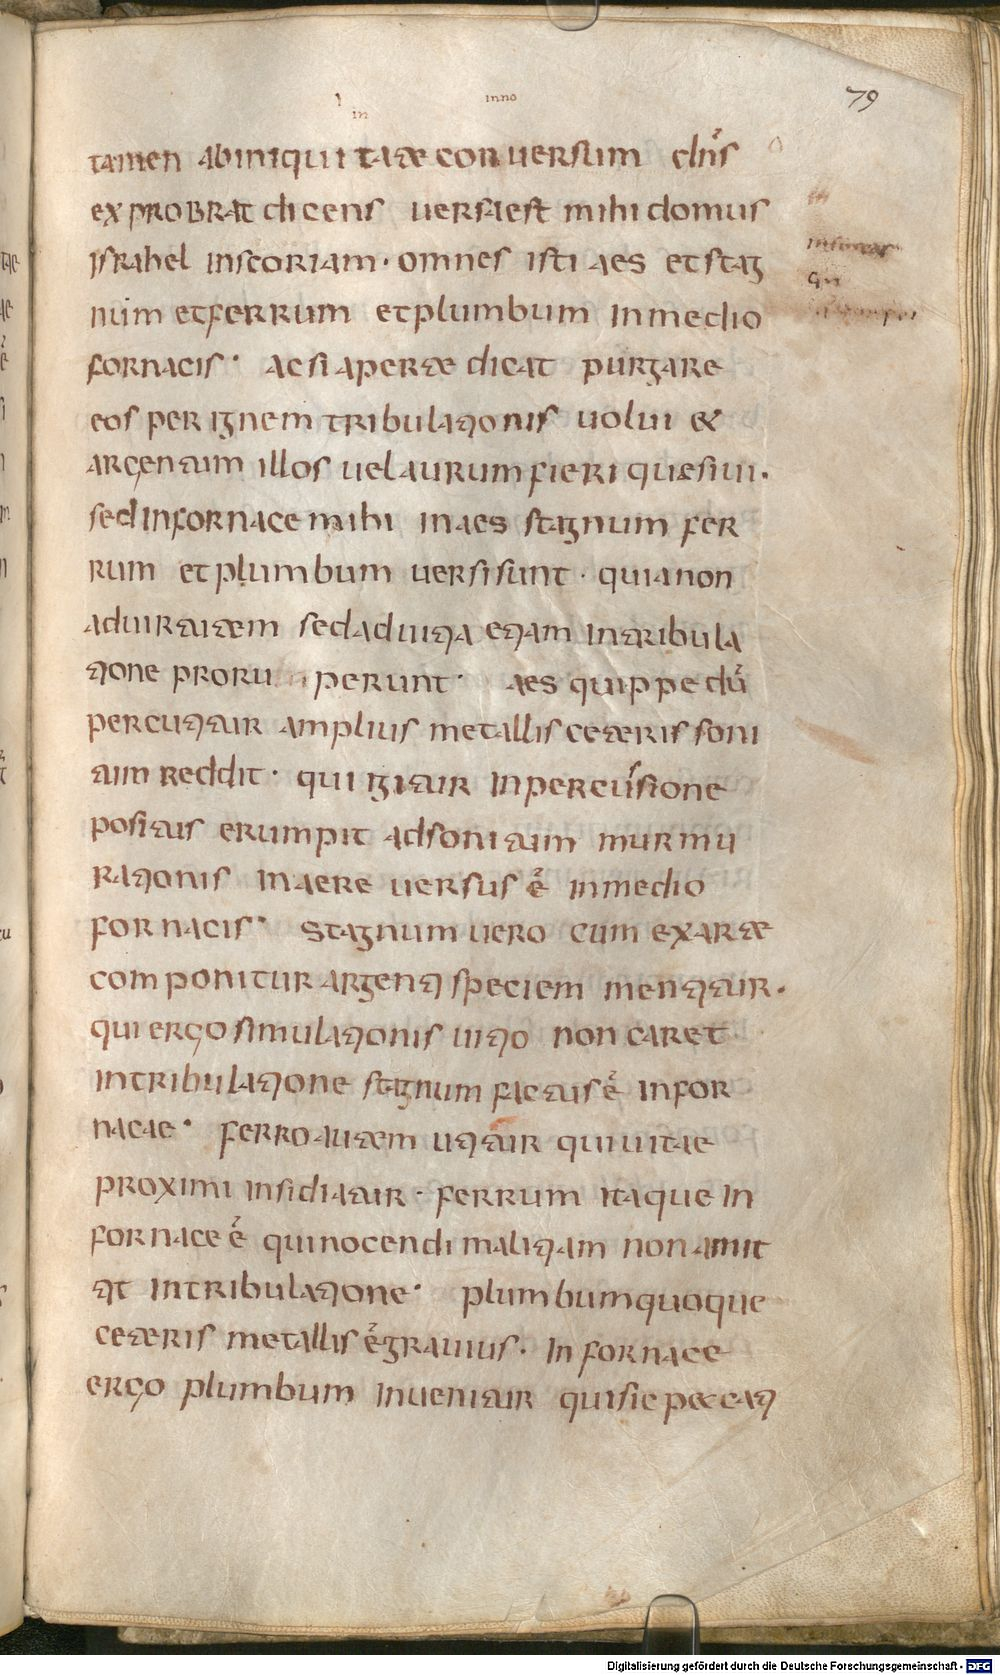 inno
in
79
tamen ab iniquitate conuersum dn̄s
exprobrat dicens uersa est mihi domus
israhel in scoriam · omnes isti aes et stag
num et ferrum et plumbum in medio
fornacis · ac si aperte dicat purgare
eos per ignem tribulationis uolui et
argentum illos uel aurum fieri quaesiui ·
sed in fornace mihi in aes stagnum fer
rum et plumbum uersi sunt · quia non
ad uirtutem sed ad uitia etiam in tribula
tione proru perunt · aes quippe dū
percutitur amplius metallis ceteris soni
tum reddit · qui igitur in percussione
positus erumpit ad sonitum murmu
rationis in aere uersus ē in medio
fornacis · stagnum uero cum ex arte
componitur argenti speciem mentitur ·
qui ergo simulationis uitio non caret
in tribulatione stagnum factus ē in for
nacae · ferro autem utitur qui uitae
proximi insidiatur · ferrum itaque in
fornace ē qui nocendi malitiam non amit
tit in tribulatione · plumbum quoque
ceteris metallis ē grauius · in fornace
ergo plumbum inuenitur qui sic peccati
Digitalisierung gefördert durch die Deutsche Forschungsgemeinschaft - DFG